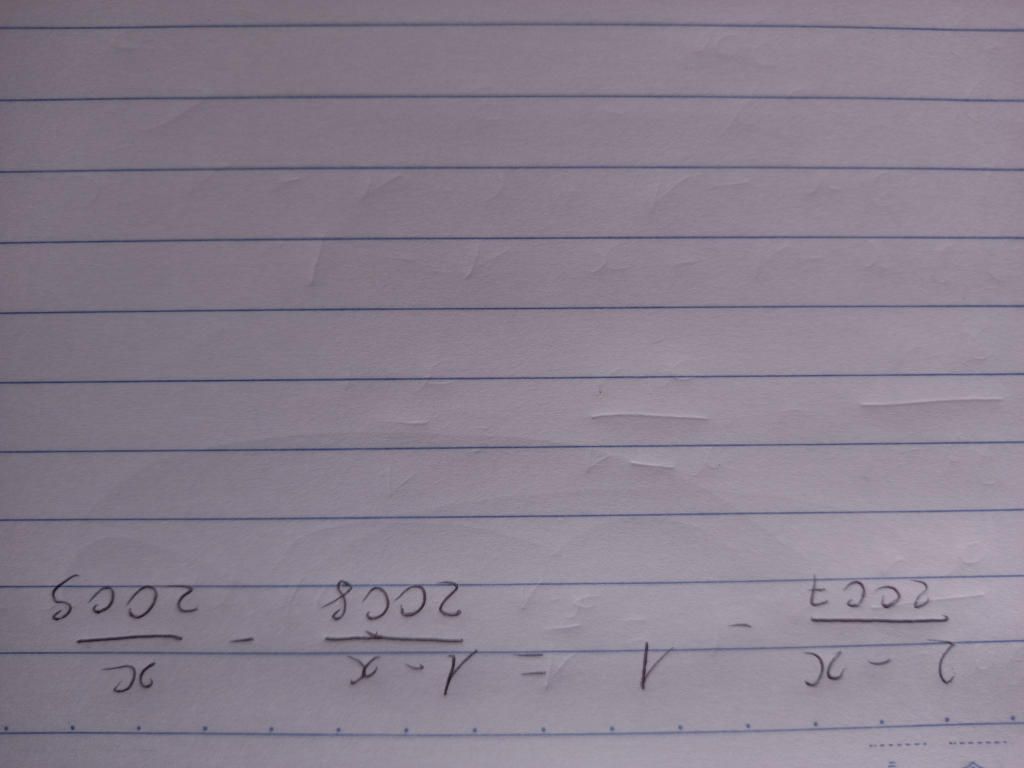 2 - x / 2007 - 1 = 1 - x / 2008 - x / 2009